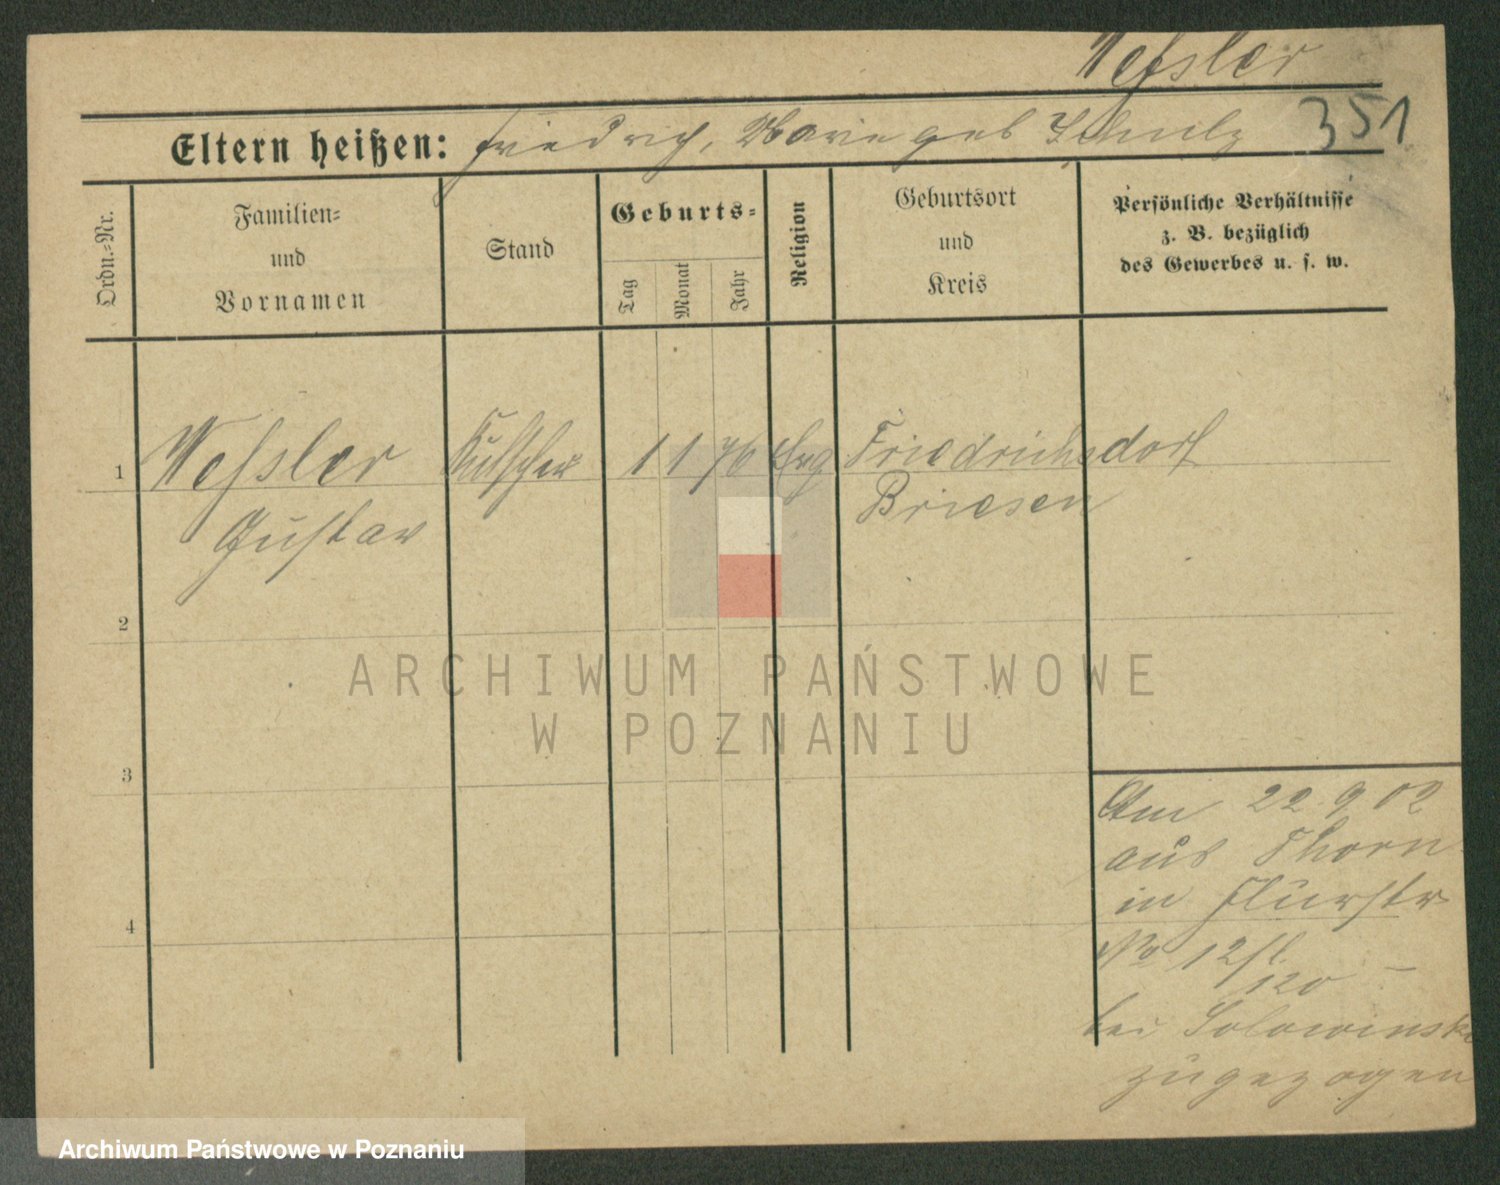 Weßler
Eltern heißen: Friedrich, Marie geb Schulz 351
Ordn.-Nr.
Familien-
und
Vornamen
Stand
Geburts-
Tag
Monat
Jahr
Religion
Geburtsort
und
Kreis
Persönliche Verhältnisse
z. B. bezüglich
des Gewerbes u. s. w.
1 Weßler Kutscher 1 1 76 Evg Friedrichsdorf
Gustav Briesen
2
3
4
Am 22.9 02
aus Thorn
in Flurstr
No 12
120
bei Solowinski
zugezogen
ARCHIWUM PAŃSTWOWE
W POZNANIU
Archiwum Państwowe w Poznaniu